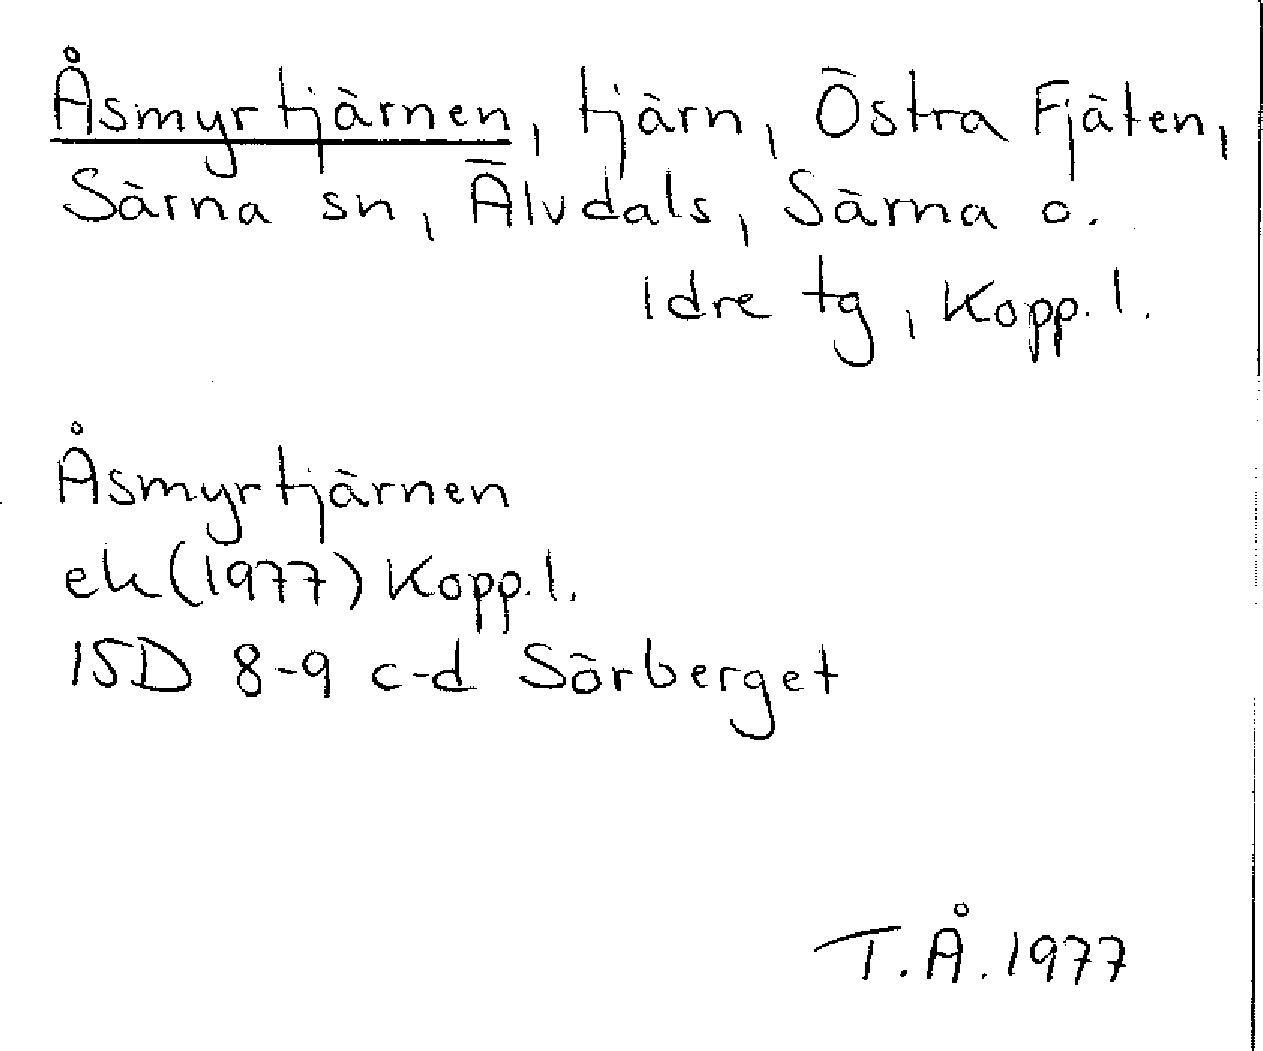 Åsmyrtjärnen, tjärn, Östra Fjäten,
Särna sn, Älvdals, Särna o.
Idre tg, Kopp. l.
Åsmyrtjärnen
ek (1977) Kopp. l.
15D 8-9 c-d Sörberget
T.Å. 1977